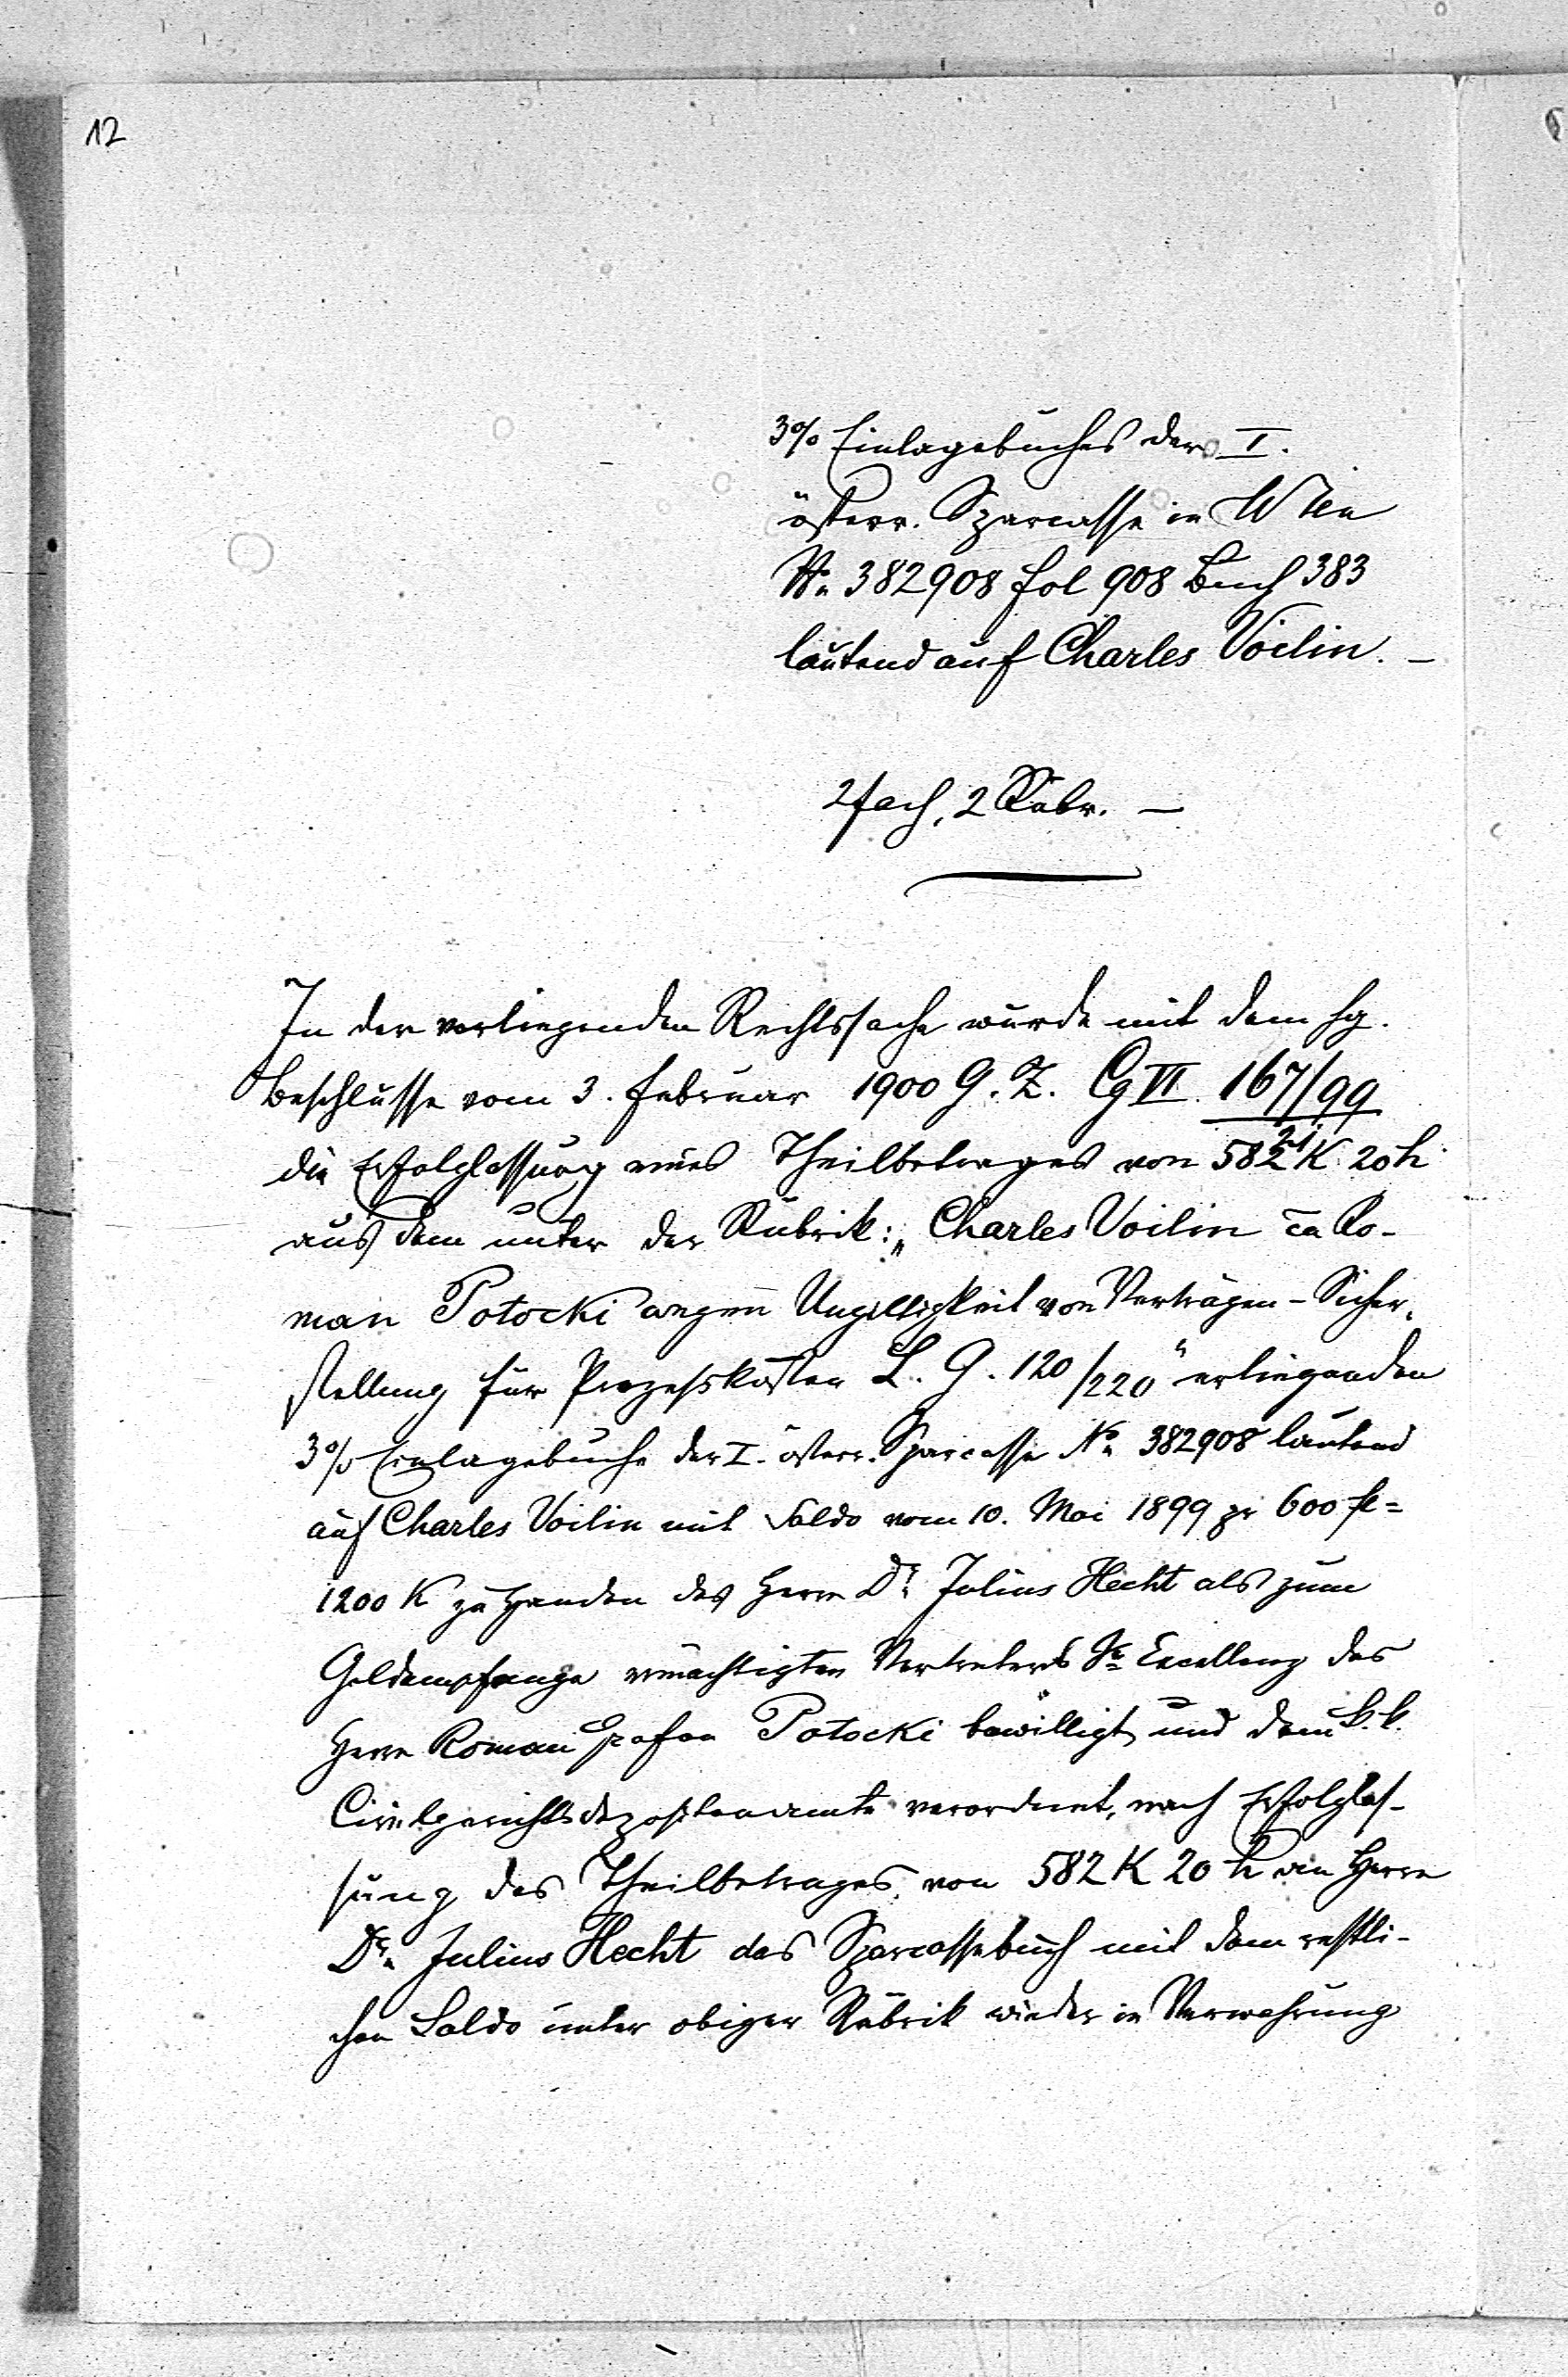 12
3% Einlagebuches der I.
österr. Sparcasse in Wien
No 382908 fol 908 Buch 383
lautend auf Charles Voilin. —
2fach, 2 Rubr. —
In der vorliegenden Rechtssache wurde mit dem hg.
Beschlusse vom 3. Februar 1900 G. Z. Cg VI. 167/99
21
die Erfolglassung eines Theilbetrages von 582 K 20 h
aus dem unter der Rubrik: „Charles Voilin ca Ro-
man Potocki wegen Ungiltigkeit von Verträgen - Sicher-
stellung für Prozeßkosten L. G. 120/220" erliegenden
3% Einlagebuche der I. österr. Sparcasse No 382908 lautend
auf Charles Voilin mit Saldo vom 10. Mai 1899 pr 600 fl =
1200 K zu Handen des Herrn Dr. Julius Hecht als zum
Geldempfange ermächtigten Vertreters Sr Excellenz des
Herrn Roman Grafen Potocki bewilligt und dem k. k.
Civilgerichtsdepositenamte verordnet, nach Erfolglas-
sung des Theilbetrages von 582 K 20 h an Herrn
Dr. Julius Hecht das Sparcassebuch mit dem restli-
chen Saldo unter obiger Rubrik wieder in Verwahrung